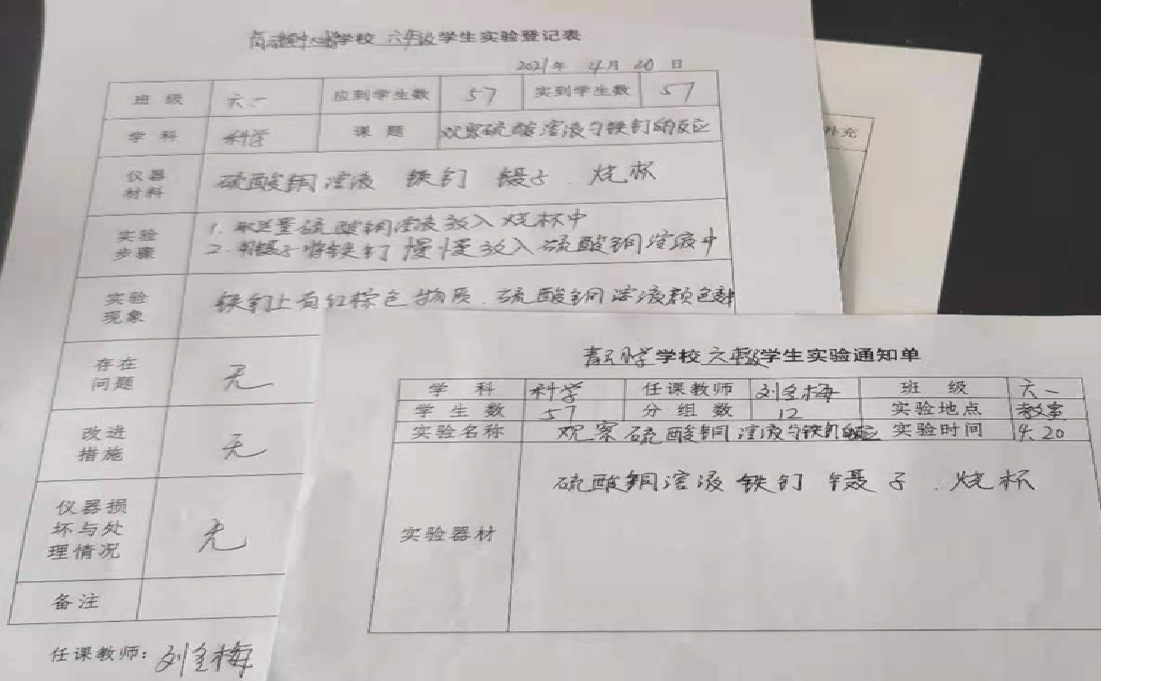 学校 六年级学生实验登记表
2021年 4月 20日
班 级 六一 应到学生数 57 实到学生数 57
学 科 科学 课 题 观察硫酸溶液与铁钉的反应
仪器
材料
硫酸铜溶液 铁钉 镊子 . 烧杯
实验
步骤
1. 取适量硫酸铜溶液放入烧杯中
2. 用镊子将铁钉慢慢放入硫酸铜溶液中
实验
现象
铁钉上有红棕色物质 . 硫酸铜溶液颜色
存在
问题
无
改进
措施
无
仪器损
坏与处
理情况
无
备注
任课教师:刘金梅
补充
青云小学学校六年级学生实验通知单
学 科 科学 任课教师 刘金梅 班 级 六一
学 生 数 57 分 组 数 12 实验地点 教室
实验名称 观察硫酸铜溶液与铁钉的反应 实验时间 4.20
实验器材
硫酸铜溶液 铁钉 镊子 . 烧杯